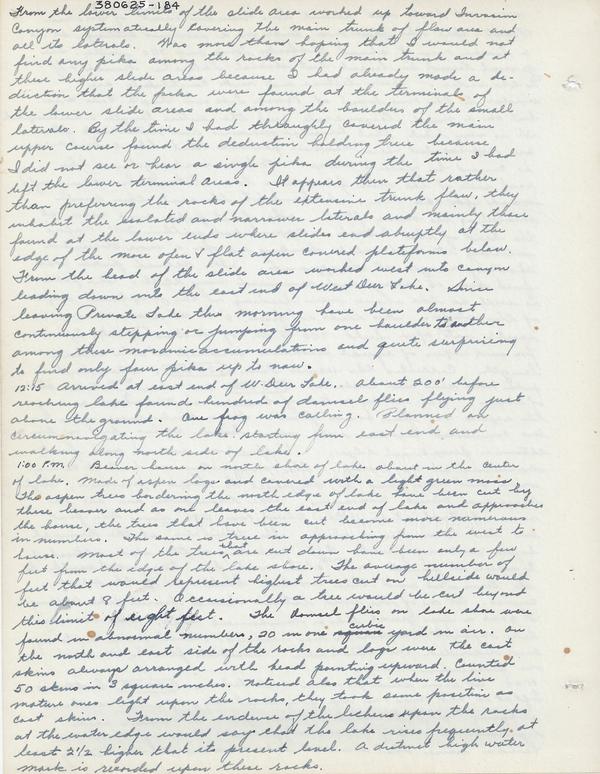 380625-184
From the lower limits of the slide area worked up toward Invasion
Canyon systematically covering the main trunk of flow area and
all its laterals. Was more than hoping that I would not
find any pika among the rocks of the main trunk and at
these higher slide areas because I had already made a de-
duction that the pika were found at the terminals of
the lower slide areas and among the boulders of the small
laterals. By the time I had throughly covered the main
upper course found the deduction holding true because
I did not see or hear a single pika during the time I had
left the lower terminal areas. It appears then that rather
than preferring the rocks of the extensive trunk flow, they
inhabit the isolated and narrower laterals and mainly those
found at the lower ends where slides end abruptly at the
edge of the more open & flat aspen covered platforms below.
From the head of the slide area worked west into canyon
leading down into the east end of West Deer Lake. Since
leaving Private Lake this morning have been almost
continuously stepping or jumping from one boulder to another
among these morainic accumulations and quite surprising
to find only four pika up to now.
12:15 Arrived at east end of W. Deer Lake. About 200' before
reaching lake found hundred of damsel flies flying just
above the ground. One frog was calling. Planned on
circumnavigating the lake starting from east end and
walking along north side of lake.
1:00 P.M. Beaver house on north shore of lake about in the center
of lake. Made of aspen logs and covered with a light green moss.
The aspen trees bordering the north edge of lake have been cut by
these beaver and as one leaves the east end of lake and approaches
the house, the trees that have been cut become more numerous
in numbers. The same is true in approaching from the west to
house. Most of the trees that are cut down have been only a few
feet from the edge of the lake shore. The average number of
feet that would represent highest trees cut on hillside would
be about 8 feet. Occussionally a tree would be cut beyond
this limit of eight feet. The Damsel flies on lake shore were
found in abnormal numbers, 20 in one cubic yard in air. On
the north and east side of the rocks and logs were the cast
skins always arranged with head pointing upward. Counted
50 skins in 3 square inches. Noticed also that when the live
mature ones light upon the rocks, they took same position as
cast skins. From the evidence of the lichens upon the rocks
at the water edge would say that the lake rises frequently at
least 2 1/2 higher that its present level. A distinct high water
mark is recorded upon these rocks.